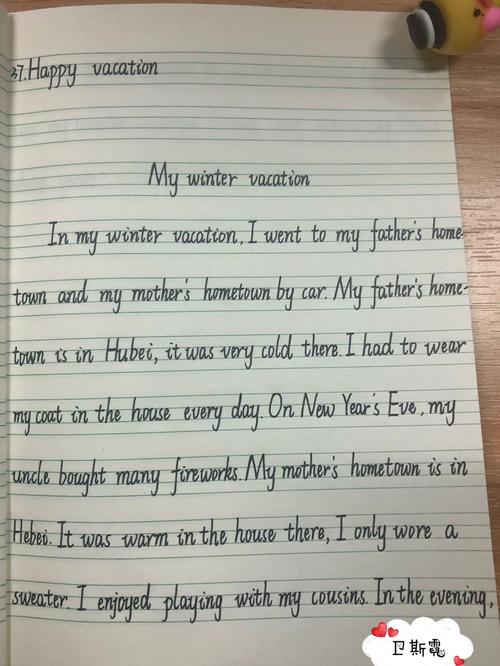 37. Happy vacation
My winter vacation
In my winter vacation, I went to my father's home-
town and my mother's hometown by car. My father's home-
town is in Hubei, it was very cold there. I had to wear
my coat in the house every day. On New Year's Eve, my
uncle bought many fireworks. My mother's hometown is in
Hebei. It was warm in the house there, I only wore a
sweater. I enjoyed playing with my cousins. In the evening,
卫斯霓